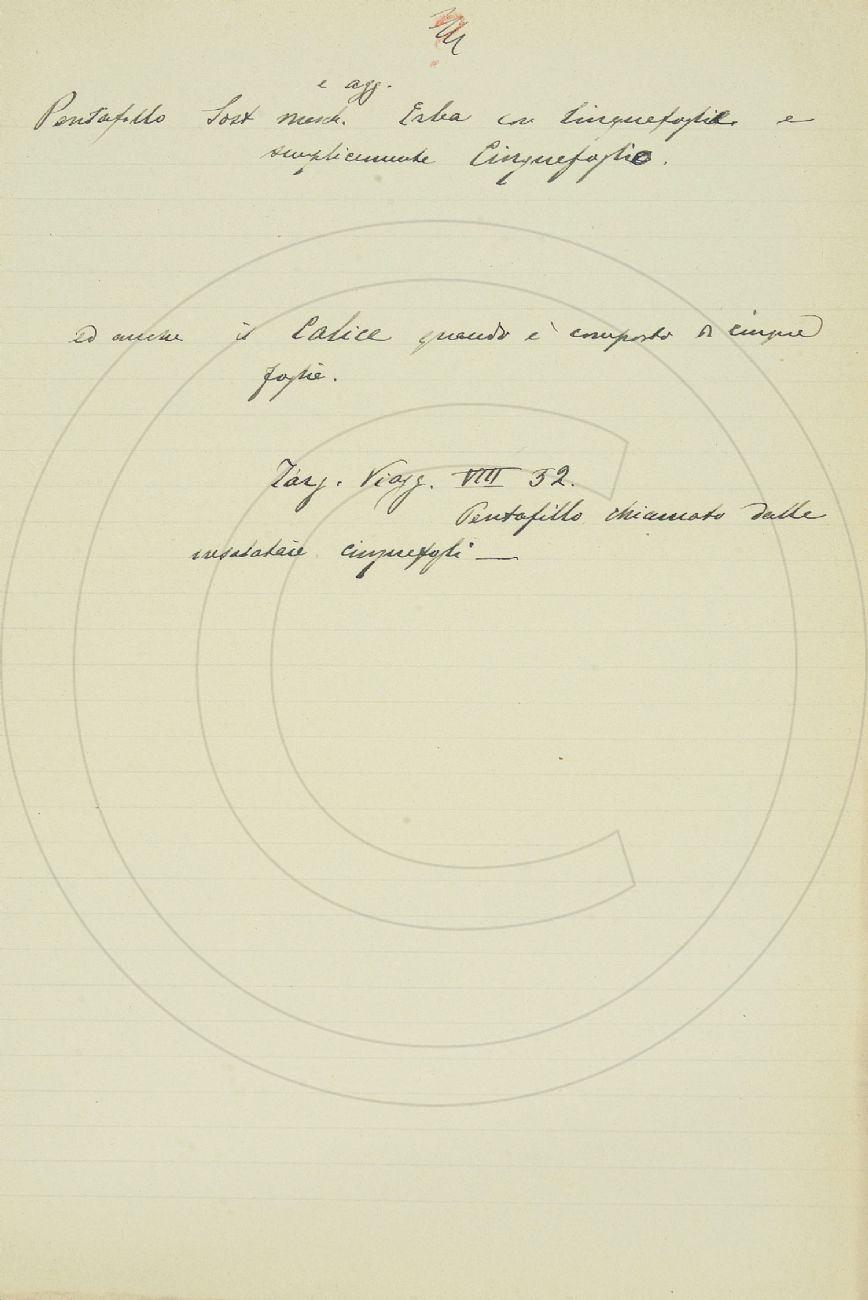 e agg.
Pentafillo Sost masch. Erba con Cinquefoglie. e
semplicemente Cinquefoglie.
ed anche il Calice quando è composto di cinque
foglie.
Targ. Viagg. VIII 32.
Pentafillo chiamato dalle
insalataie cinquefogli —